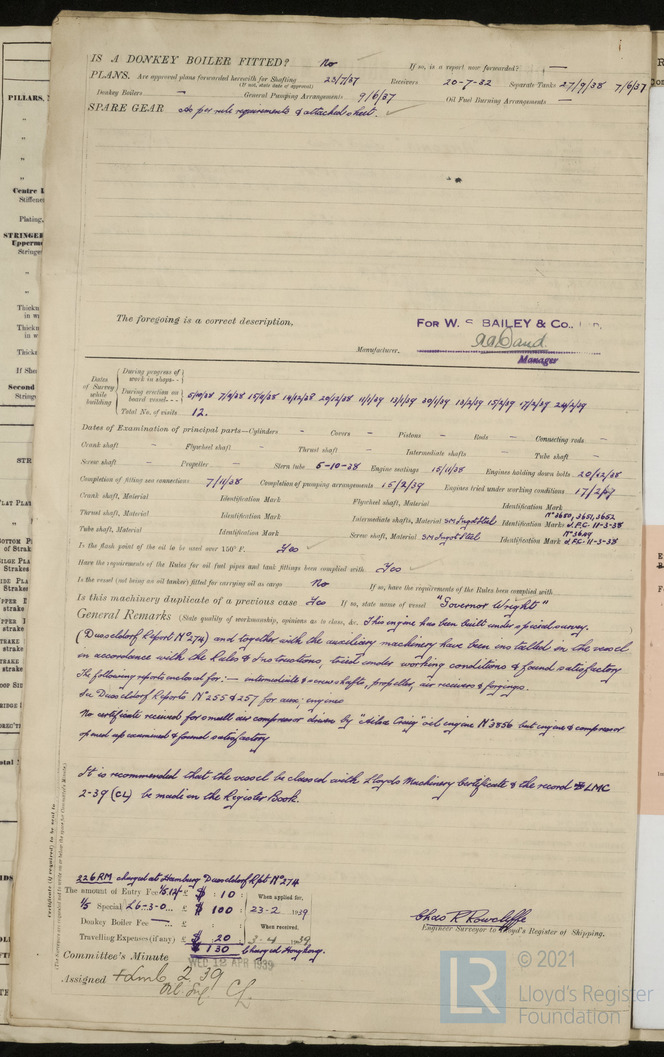 IS A DONKEY BOILER FITTED? No If so, is a report now forwarded? —
PLANS. Are approved plans forwarded herewith for Shafting 23/7/37 Receivers 20-7-32 Separate Tanks 27/9/38 7/6/37
(If not, state date of approval)
Donkey Boilers — General Pumping Arrangements 9/6/37 Oil Fuel Burning Arrangements —
SPARE GEAR As per rule requirements & attached sheet.
The foregoing is a correct description,
FOR W. S. BAILEY & Co.,
Manufacturer.
Manager
Dates of Survey while building
During progress of work in shops - -
During erection on board vessel - - - 5/10/38 7/11/38 15/11/38 16/12/38 20/12/38 11/1/39 13/1/39 30/1/39 13/2/39 15/2/39 17/2/39 20/2/39
Total No. of visits 12.
Dates of Examination of principal parts—Cylinders - Covers - Pistons - Rods - Connecting rods -
Crank shaft - Flywheel shaft - Thrust shaft - Intermediate shafts - Tube shaft -
Screw shaft - Propeller - Stern tube 5-10-38 Engine seatings 15/11/38 Engines holding down bolts 20/12/38
Completion of fitting sea connections 7/11/38 Completion of pumping arrangements 15/2/39 Engines tried under working conditions 17/2/39
Crank shaft, Material Identification Mark Flywheel shaft, Material Identification Mark
Thrust shaft, Material Identification Mark Intermediate shafts, Material SM Ingot Steel Identification Marks No 3650, 3651, 3652 J.F.C. 11-3-38
Tube shaft, Material Identification Mark Screw shaft, Material SM Ingot Steel Identification Mark No 3649 J.F.C. 11-3-38
Is the flash point of the oil to be used over 150° F. Yes
Have the requirements of the Rules for oil fuel pipes and tank fittings been complied with Yes
Is the vessel (not being an oil tanker) fitted for carrying oil as cargo No If so, have the requirements of the Rules been complied with
Is this machinery duplicate of a previous case Yes If so, state name of vessel "Governor Wright"
General Remarks (State quality of workmanship, opinions as to class, &c. This engine has been built under special survey.
(Dusseldorf Report No 274) and together with the auxiliary machinery have been installed in the vessel
in accordance with the Rules & Instructions, tried under working conditions & found satisfactory
The following reports enclosed for:— intermediate & screw shafts, propeller, air receivers & forgings.
Dusseldorf Reports No 255 & 257 for aux: engines
No certificate received for small air compressor driven by "Ailsa Craig" oil engine No 3856 but engine & compressor
opened up examined & found satisfactory
It is recommended that the vessel be classed with Lloyds Machinery Certificate & the record LMC
2-39 (CL) be made in the Register Book.
226 RM charged at Hamburg Dusseldorf Rpt No 274
The amount of Entry Fee £ $ 10 : When applied for,
1/5 Special £6-3-0 £ $ 100 : 23-2 1939
Donkey Boiler Fee — £ : When received.
Travelling Expenses (if any) £ $ 20 : 3-4 1939
$ 130 Charged Hongkong.
Chas R Rowcliffe
Engineer Surveyor to Lloyd's Register of Shipping.
Committee's Minute WED 12 APR 1939
Assigned + Lmb 2. 39
Oil Eng. CL.
© 2021
LR Lloyd's Register
Foundation